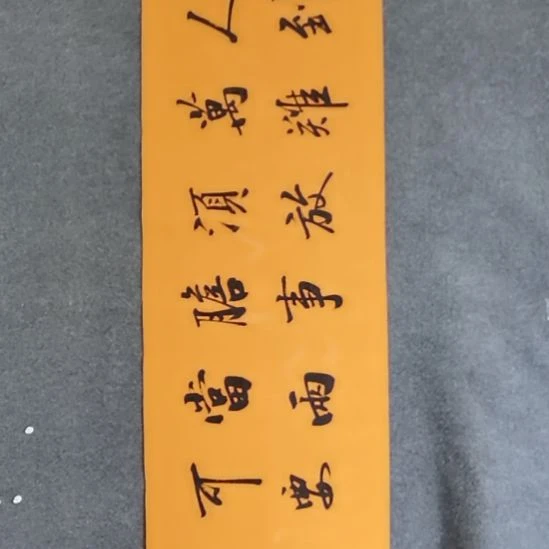 人到
萬難
須放
膽事
當兩
可要